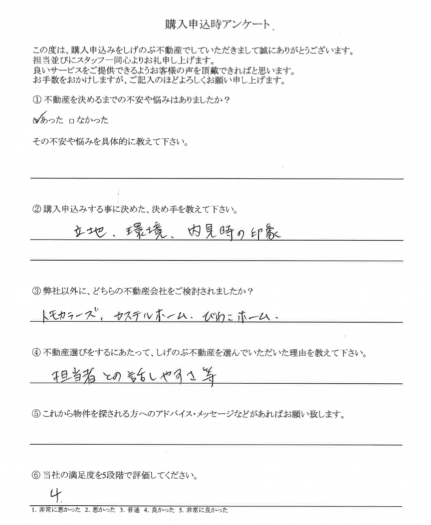 購入申込時アンケート
この度は、購入申込みをしげのぶ不動産でしていただきまして誠にありがとうございます。
担当並びにスタッフ一同心よりお礼申し上げます。
良いサービスをご提供できるようお客様の声を頂戴できればと思います。
お手数をおかけしますが、ご記入のほどよろしくお願い申し上げます。
① 不動産を決めるまでの不安や悩みはありましたか？
☑あった □なかった
その不安や悩みを具体的に教えて下さい。
② 購入申込みする事に決めた、決め手を教えて下さい。
立地、環境、内見時の印象
③ 弊社以外に、どちらの不動産会社をご検討されましたか？
トモカラーズ、カステルホーム、びわこホーム、
④ 不動産選びをするにあたって、しげのぶ不動産を選んでいただいた理由を教えて下さい。
担当者との話しやすさ等
⑤ これから物件を探される方へのアドバイス・メッセージなどがあればお願い致します。
⑥ 当社の満足度を5段階で評価してください。
4
1. 非常に悪かった 2. 悪かった 3. 普通 4. 良かった 5. 非常に良かった